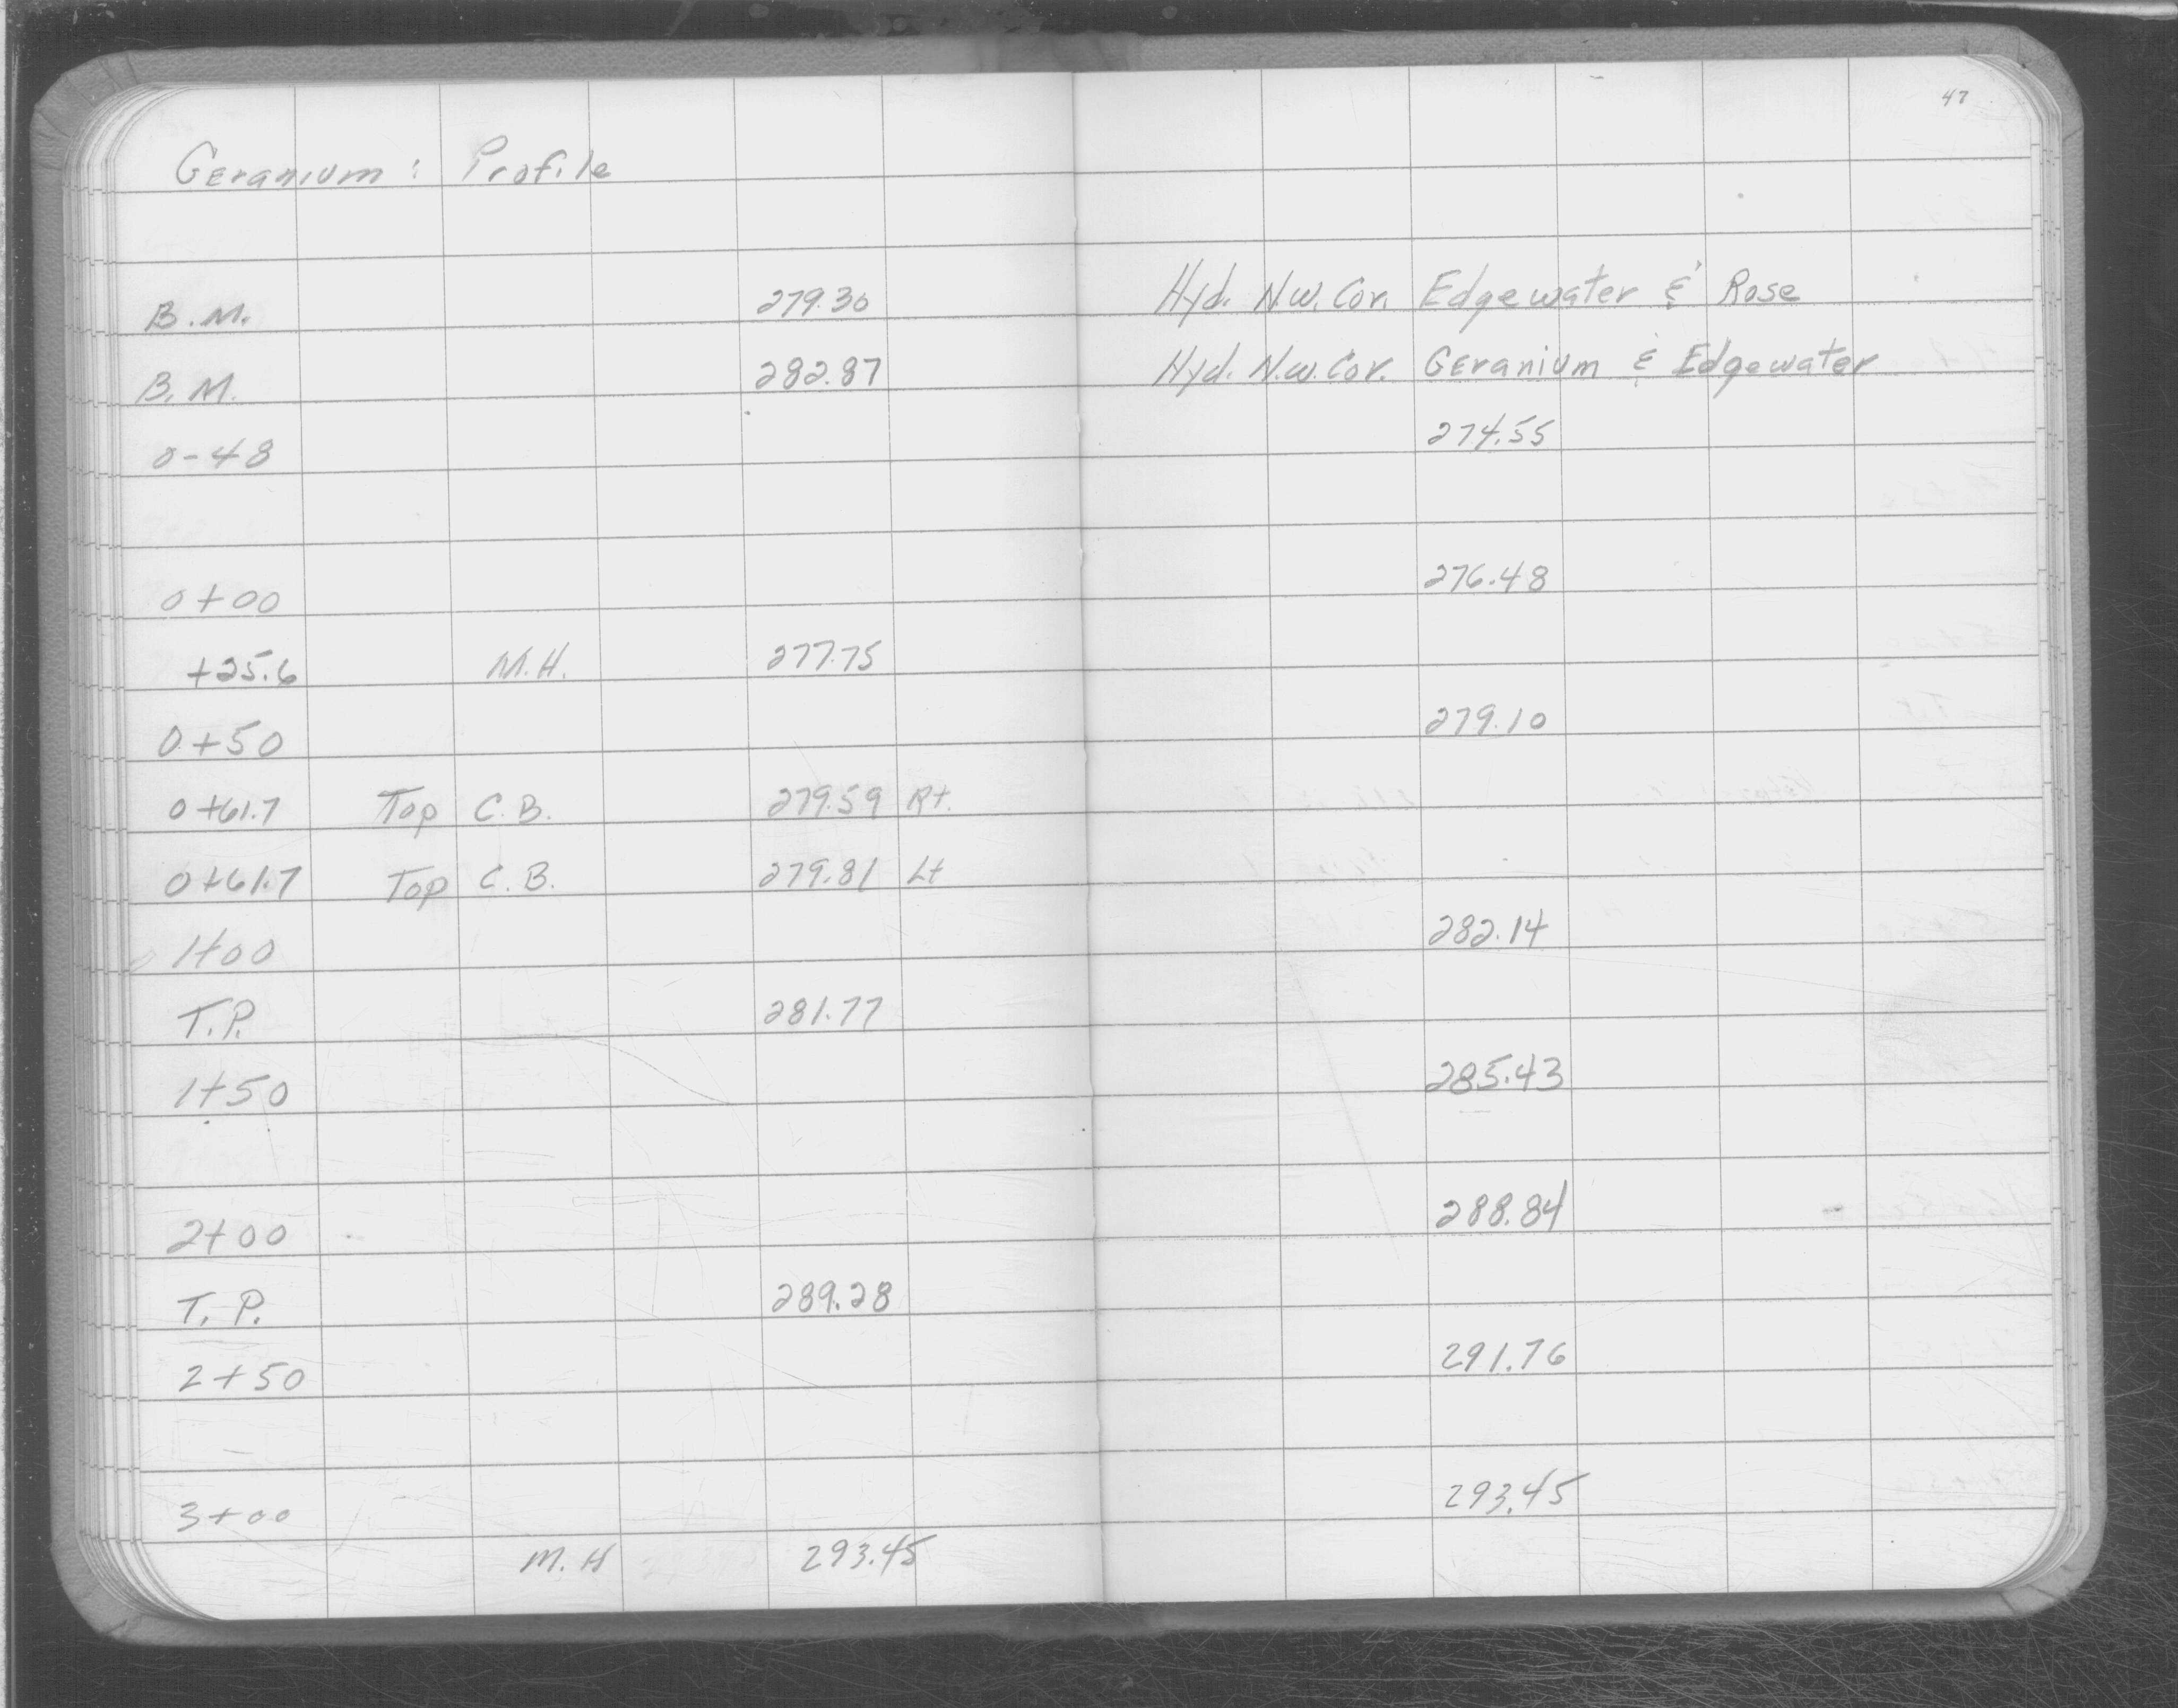 47
Geranium: Profile
B.M. 279.30 Hyd. N.W. Cor. Edgewater & Rose
B.M. 282.87 Hyd. N.W. Cor. Geranium & Edgewater
0-48 274.55
0+00 276.48
+25.6 M.H. 277.75
0+50 279.10
0+61.7 Top C.B. 279.59 Rt.
0+61.7 Top C.B. 279.81 Lt
1+00 282.14
T.P. 281.77
1+50 285.43
2+00 288.84
T.P. 289.28
2+50 291.76
3+00 293.45
M.H 293.45